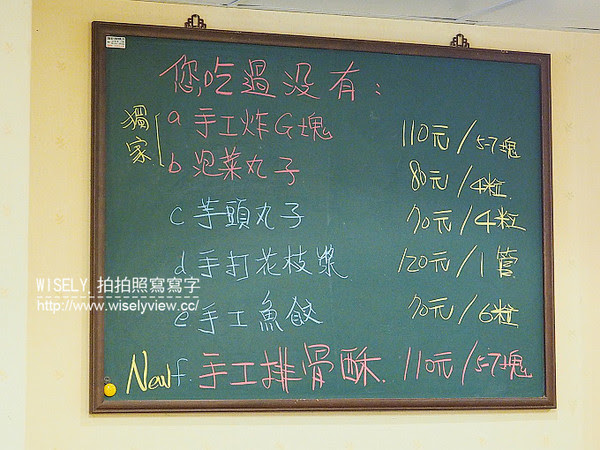 您吃過没有：
獨家
a 手工炸G塊 110元/5-7塊
b 泡菜丸子 80元/4粒
c 芋頭丸子 70元/4粒
d 手打花枝漿 120元/1管
e 手工魚餃 70元/6粒
New f. 手工排骨酥. 110元/5-7塊
WISELY 拍拍照寫寫字
http://www.wiselyview.cc/